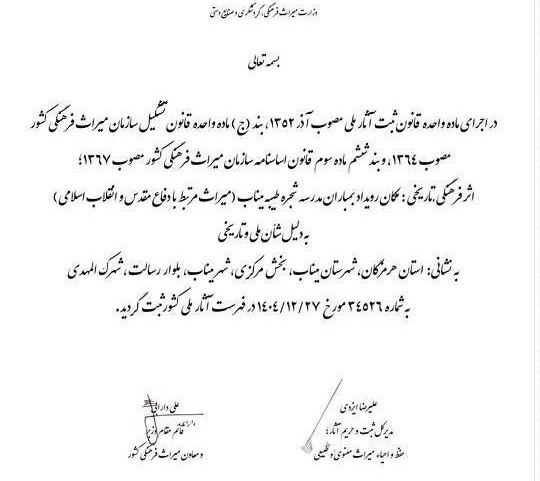 وزارت میراث فرهنگی، گردشگری و صنایع دستی
بسمه تعالی
در اجرای ماده واحده قانون ثبت آثار ملی مصوب آذر ۱۳۵۲، بند (ج) ماده واحده قانون تشکیل سازمان میراث فرهنگی کشور
مصوب ۱۳۶۴، و بند ششم ماده سوم قانون اساسنامه سازمان میراث فرهنگی کشور مصوب ۱۳۶۷؛
اثر فرهنگی تاریخی: مکان رویداد بمباران مدرسه شجره طیبه میناب (میراث مرتبط با دفاع مقدس و انقلاب اسلامی)
به دلیل شأن ملی و تاریخی
به نشانی: استان هرمزگان، شهرستان میناب، بخش مرکزی، شهر میناب، بلوار رسالت، شهرک المهدی
به شماره ۳۴۵۲۶ مورخ ۱۴۰۴/۱۲/۲۷ در فهرست آثار ملی کشور ثبت گردید.
علیرضا ایزدی
مدیرکل ثبت و حریم آثار؛
حفظ و احیاء میراث معنوی و طبیعی
علی دارابی
قائم مقام وزیر
و معاون میراث فرهنگی کشور